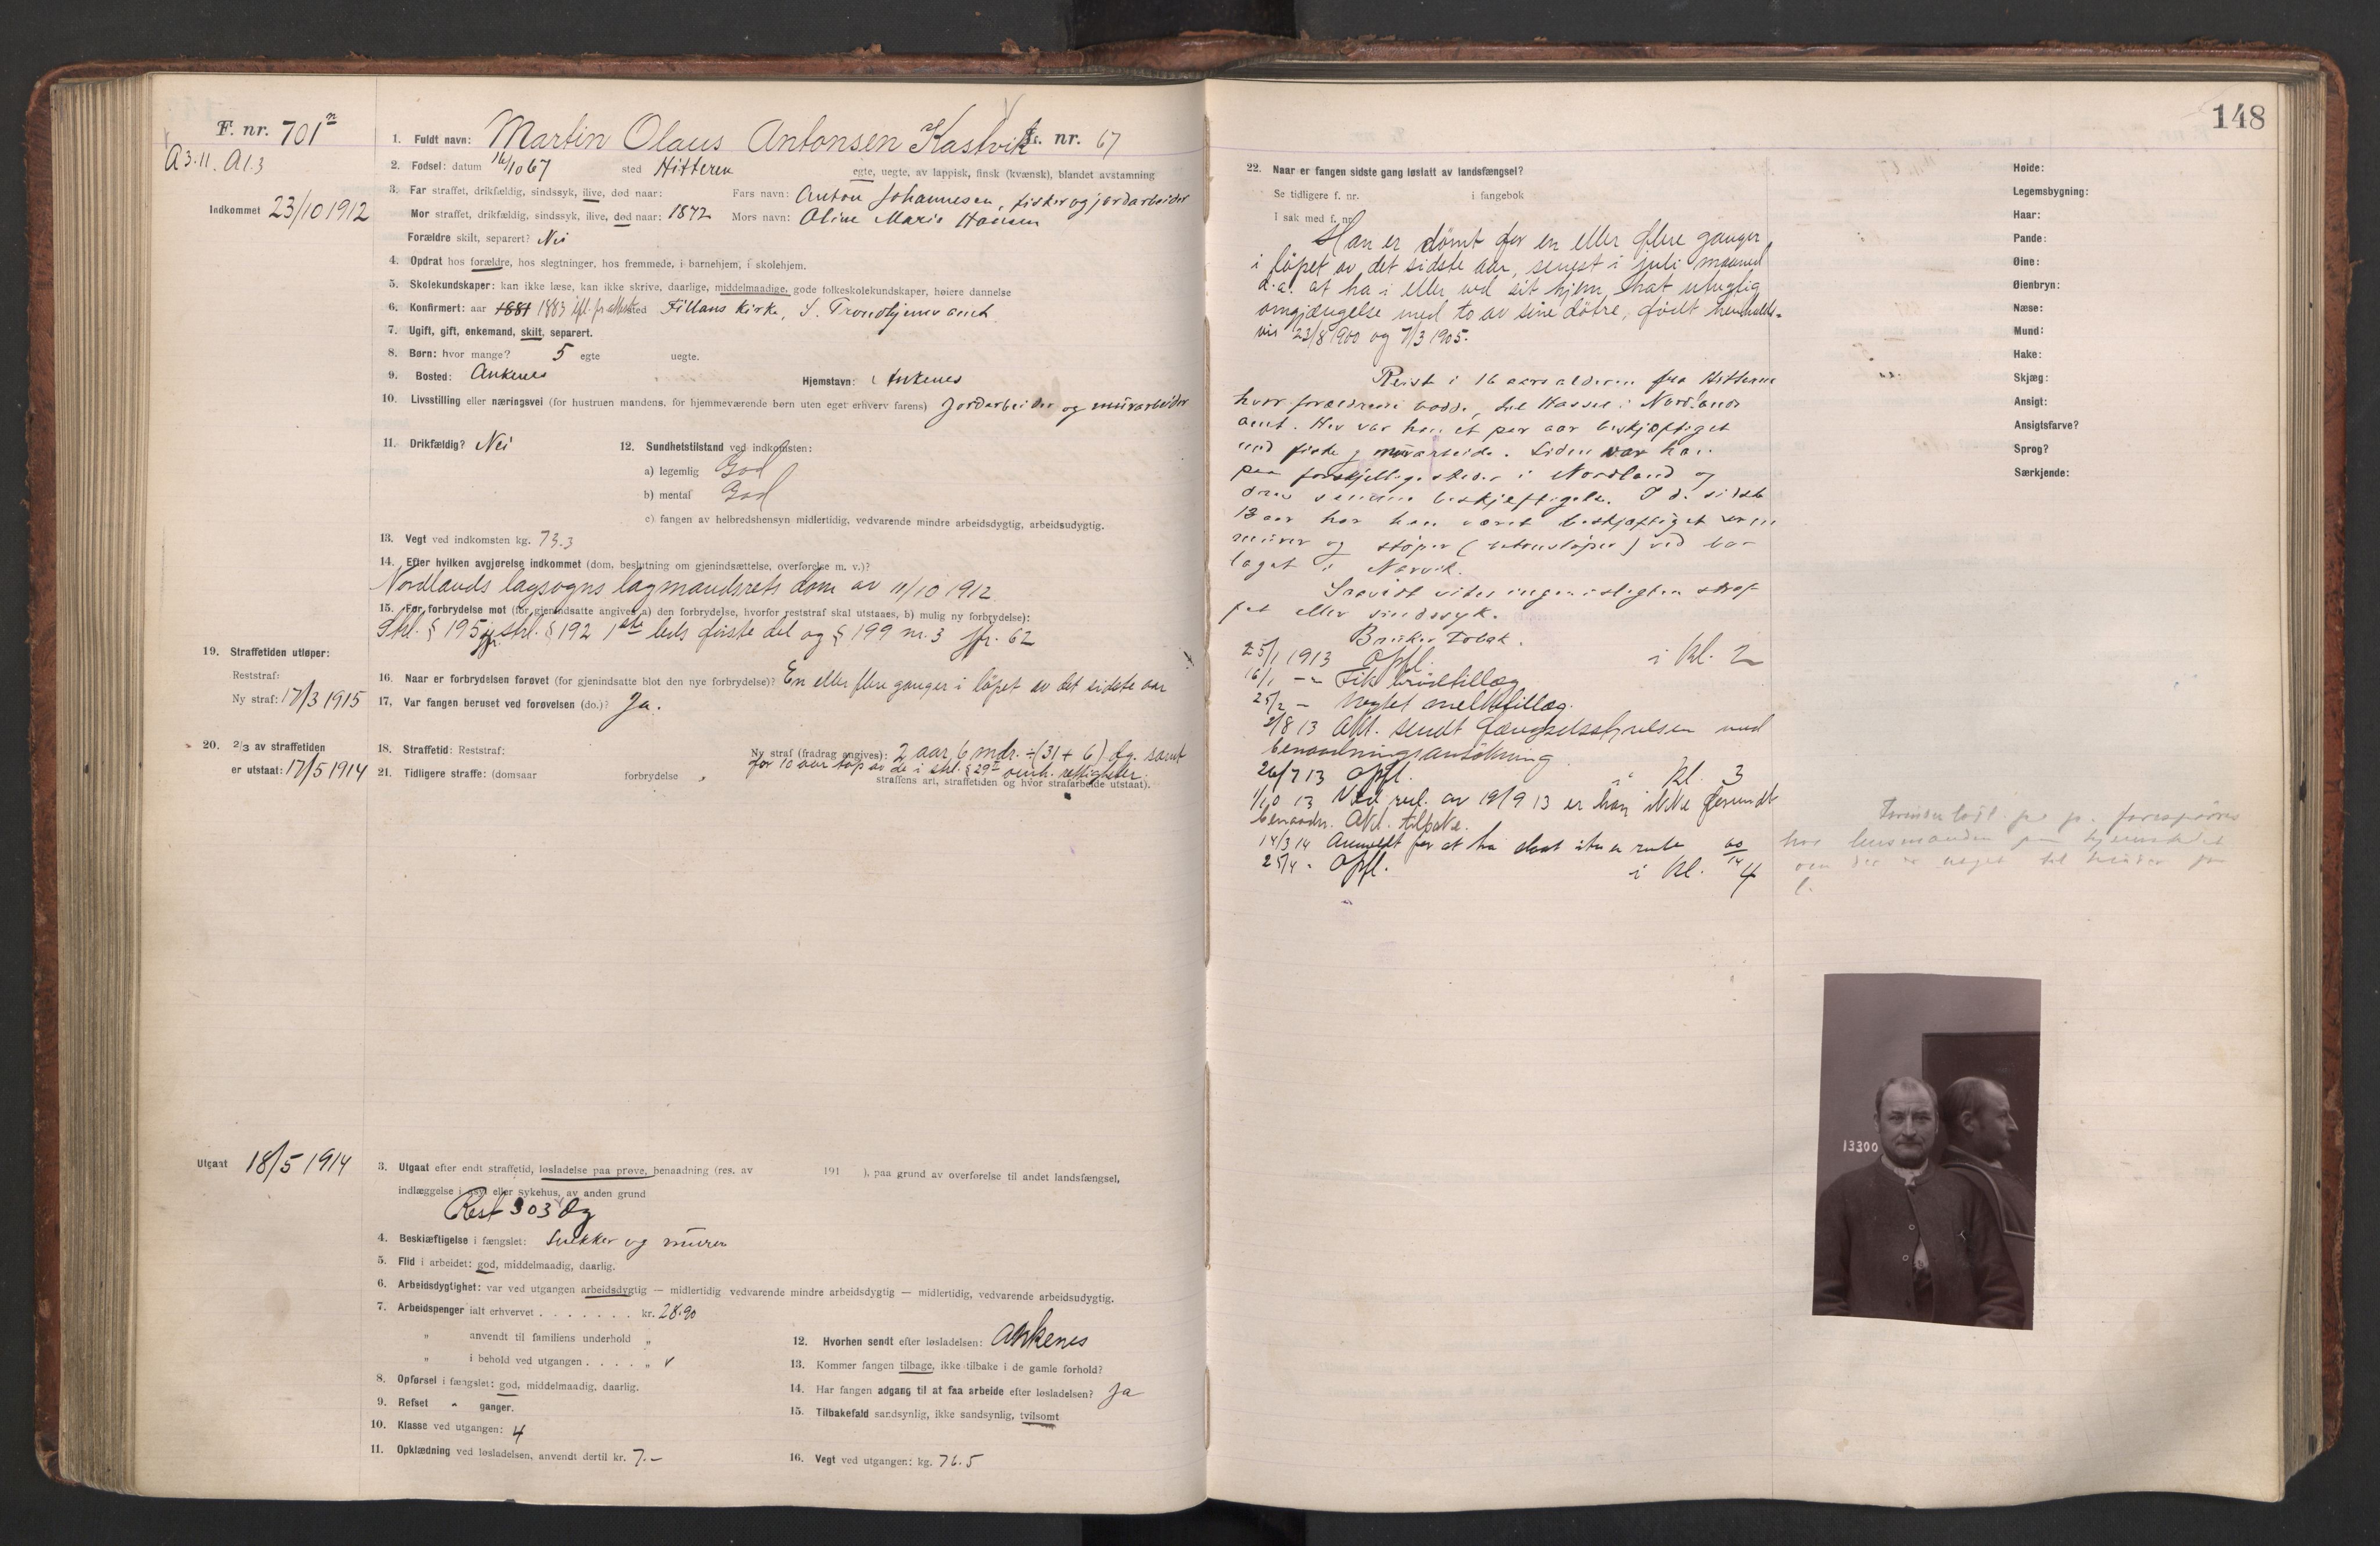 F. nr. 701 n
A 3.11. A 1.3
Indkommet 23/10 1912
1. Fuldt navn: Martin Olaus Antonsen Kastvik Kr. nr. 67
2. Fødsel: datum 16/10 67 sted Hitteren egte, uegte, av lappisk, finsk (kvænsk), blandet avstamning
3. Far straffet, drikfældig, sindssyk, ilive, død naar: Fars navn: Anton Johannesen, fisker og jordarbeider
Mor straffet, drikfældig, sindssyk, ilive, død naar: 1872 Mors navn: Oline Marie Hansen
Forældre skilt, separert? Nei
4. Opdrat hos forældre, hos slegtninger, hos fremmede, i barnehjem, i skolehjem.
5. Skolekundskaper: kan ikke læse, kan ikke skrive, daarlige, middelmaadige, gode folkeskolekundskaper, høiere dannelse
6. Konfirmert: aar 1881 1883 ifl. pr. attest sted Fillans kirke, S. Trondhjems amt
7. Ugift, gift, enkemand, skilt, separert.
8. Børn: hvor mange? 5 egte uegte.
9. Bosted: Ankenes Hjemstavn: Ankenes
10. Livsstilling eller næringsvei (for hustruen mandens, for hjemmeværende børn uten eget erhverv farens) Jordarbeider og murarbeider
11. Drikfældig? Nei 12. Sundhetstilstand ved indkomsten:
a) legemlig God
b) mental God
c) fangen av helbredshensyn midlertidig, vedvarende mindre arbeidsdygtig, arbeidsudygtig.
13. Vegt ved indkomsten kg. 73.3
14. Efter hvilken avgjørelse indkommet (dom, beslutning om gjenindsættelse, overførelse m. v.)?
Nordlands lagsogns lagmandsrets dom av 11/10 1912
15. For forbrydelse mot (for gjenindsatte angives a) den forbrydelse, hvorfor reststraf skal utstaaes, b) mulig ny forbrydelse):
Strl. § 195 jfr. strl. § 192 1ste leds første del og § 199 nr. 3 jfr. 62
19. Straffetiden utløper:
Reststraf:
Ny straf: 17/3 1915
16. Naar er forbrydelsen forøvet (for gjenindsatte blot den nye forbrydelse)? En eller flere ganger i løpet av det sidste aar
17. Var fangen beruset ved forøvelsen (do.)? Ja.
20. 2/3 av straffetiden
er utstaat: 17/5 1914
18. Straffetid: Reststraf: Ny straf (fradrag angives): 2 aar 6 mdr. ÷ (31 + 6) dg. samt
for 10 aar tap av de i strl. § 29 2 omh. rettigheter.
21. Tidligere straffe: (domsaar forbrydelse straffens art, straffetiden og hvor strafarbeide utstaat).
Utgaat 18/5 1914
3. Utgaat efter endt straffetid, løsladelse paa prøve, benaadning (res. av 191 ), paa grund av overførelse til andet landsfængsel,
indlæggelse i asyl eller sykehus, av anden grund
Rest 303 dg
4. Beskiæftigelse i fængslet: Snekker og murer
5. Flid i arbeidet: god, middelmaadig, daarlig.
6. Arbeidsdygtighet: var ved utgangen arbeidsdygtig — midlertidig vedvarende mindre arbeidsdygtig — midlertidig, vedvarende arbeidsudygtig.
7. Arbeidspenger ialt erhvervet . . . . . . . kr. 28.90
" anvendt til familiens underhold "
" i behold ved utgangen . . . . "
8. Opførsel i fængslet: god, middelmaadig, daarlig.
9. Refset ganger.
10. Klasse ved utgangen: 4
11. Opklædning ved løsladelsen, anvendt dertil kr. 7.-
12. Hvorhen sendt efter løsladelsen: Ankenes
13. Kommer fangen tilbage, ikke tilbake i de gamle forhold?
14. Har fangen adgang til at faa arbeide efter løsladelsen? Ja
15. Tilbakefald sandsynlig, ikke sandsynlig, tvilsomt
16. Vegt ved utgangen: kg. 76.5
148
22. Naar er fangen sidste gang løslatt av landsfængsel?
Se tidligere f. nr. i fangebok
I sak med f. nr.
Han er dømt for en eller flere ganger
i løpet av det sidste aar, senest i juli maaned
d.a. at ha i eller ved sit hjem hat utugtig
omgjængelse med to av sine døtre, født henholds-
vis 23/8 1900 og 7/3 1905.
Reiste i 16 aarsalderen fra Hitteren
hvor forældrene bodde, til Hassel i Nordlands
amt. Her var han et par aar beskjæftiget
med fiske og murarbeide. Siden var han
paa forskjellige steder i Nordland og
drev samme beskjæftigelse. I de sidste
12 aar har han været beskjæftiget som
murer og støper (betonstøper) ved bo-
laget i Narvik.
Saavidt vites ingen i slegten straf-
fet eller sindssyk.
Bruker tobak.
25/1 1913 Opfl. i kl. 2
16/1 -"- Fik brødtillæg
25/2 - Nøgtet melktillæg.
2/8 13 Akt. sendt fængselsstyrelsen med
benaadningsansøkning.
26/7 13 Opfl. i kl. 3
1/10 13 Ved res. av 19/9 13 er han ikke forundt
benaadn. Akt. tilbake.
14/3 14 Anmeldt for at ha slaat itu en rute
25/4 - Opfl. i kl. 4
Høide:
Legemsbygning:
Haar:
Pande:
Øine:
Øienbryn:
Næse:
Mund:
Hake:
Skjæg:
Ansigt:
Ansigtsfarve?
Sprog?
Særkjende:
hos lensmanden paa hjemstedet
om der er noget til hinder for
l.
13300